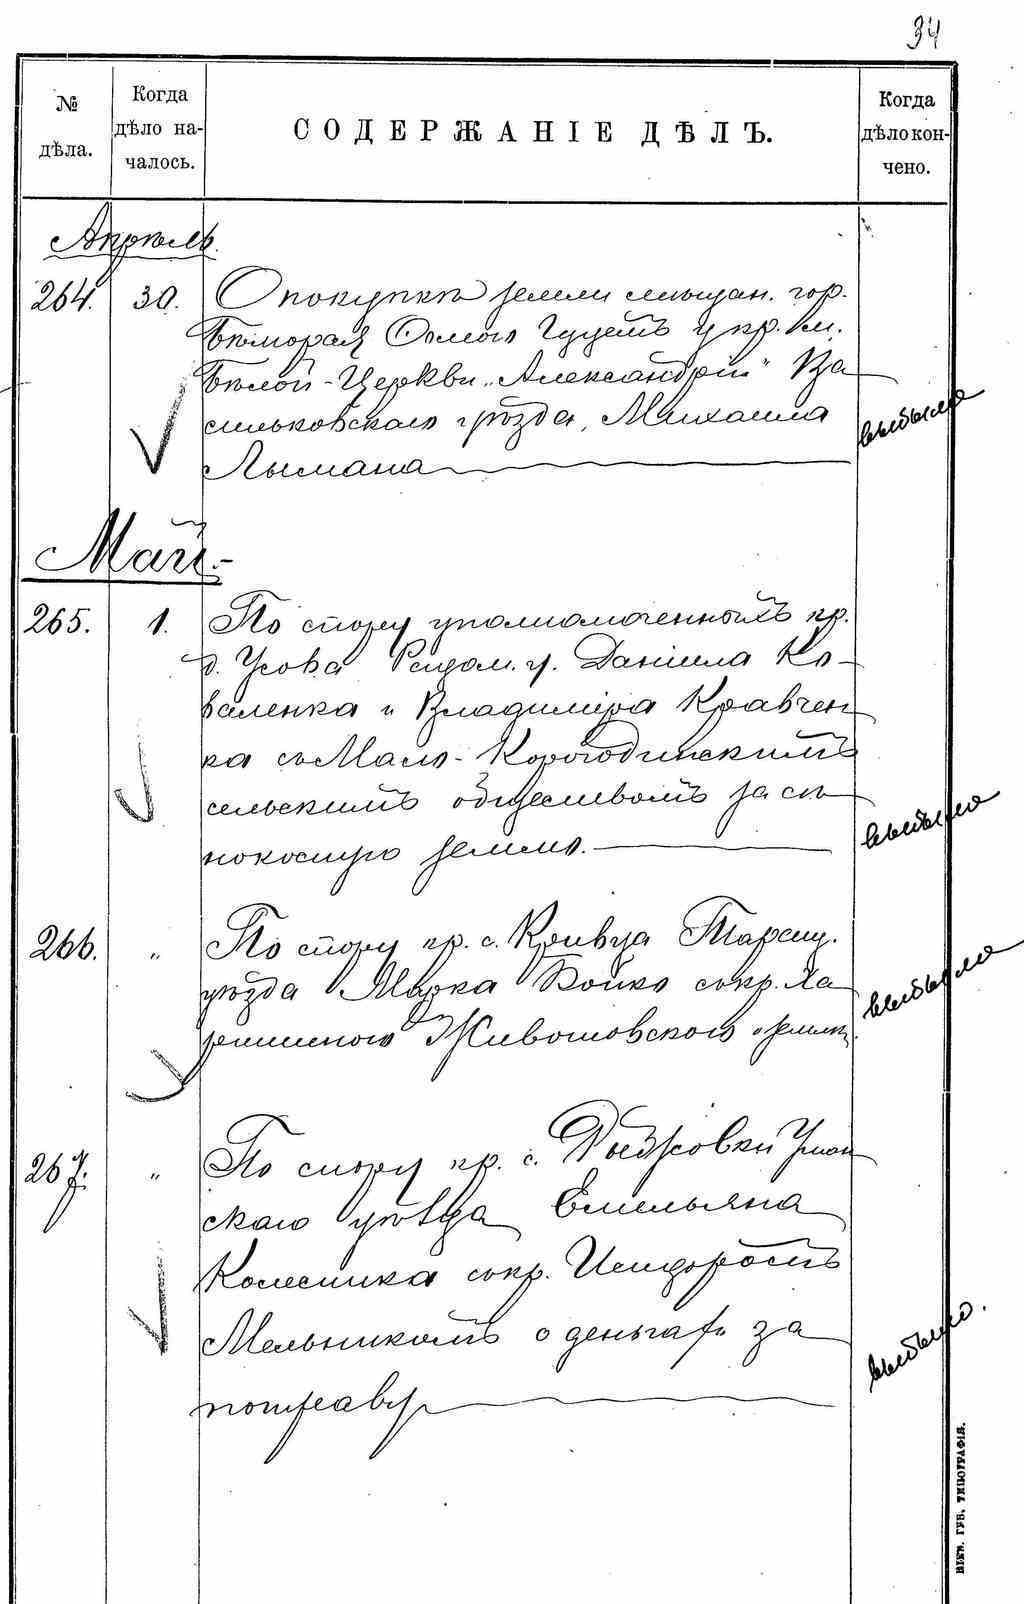 34
№ дѣла.
Когда дѣло на-чалось.
СОДЕРЖАНІЕ ДѢЛЪ.
Когда дѣло кон-чено.
Апрѣль.
264. 30. О покупкѣ земли мѣщан. гор.
у кр. м.
Бѣлой-Церкви „Александрій" Ва
сильковскаго уѣзда, Михаила
Лымана
выбыло
Май.-
265. 1. По спору уполномоченныхъ кр.
д. Усова Радом. у. Даніила Ко-
валенка и Владиміра Кравчен
ка съ Мало-Корогодинскимъ
сельскимъ обществомъ за сѣ
нокосную землю.
выбыло
266. „ По спору кр. с. Кривца Таращ.
уѣзда Марка Бойко съ кр. Ха
Животовскаго
выбыло
267. „ По спору кр. с. Рыжовки Уман
скаго уѣзда Емельяна
Колесника съ кр. Исидоромъ
Мельникомъ о деньгахъ за
потраву
выбыло.
ВѢРН. ГУБ. ТИПОГРАФІЯ.